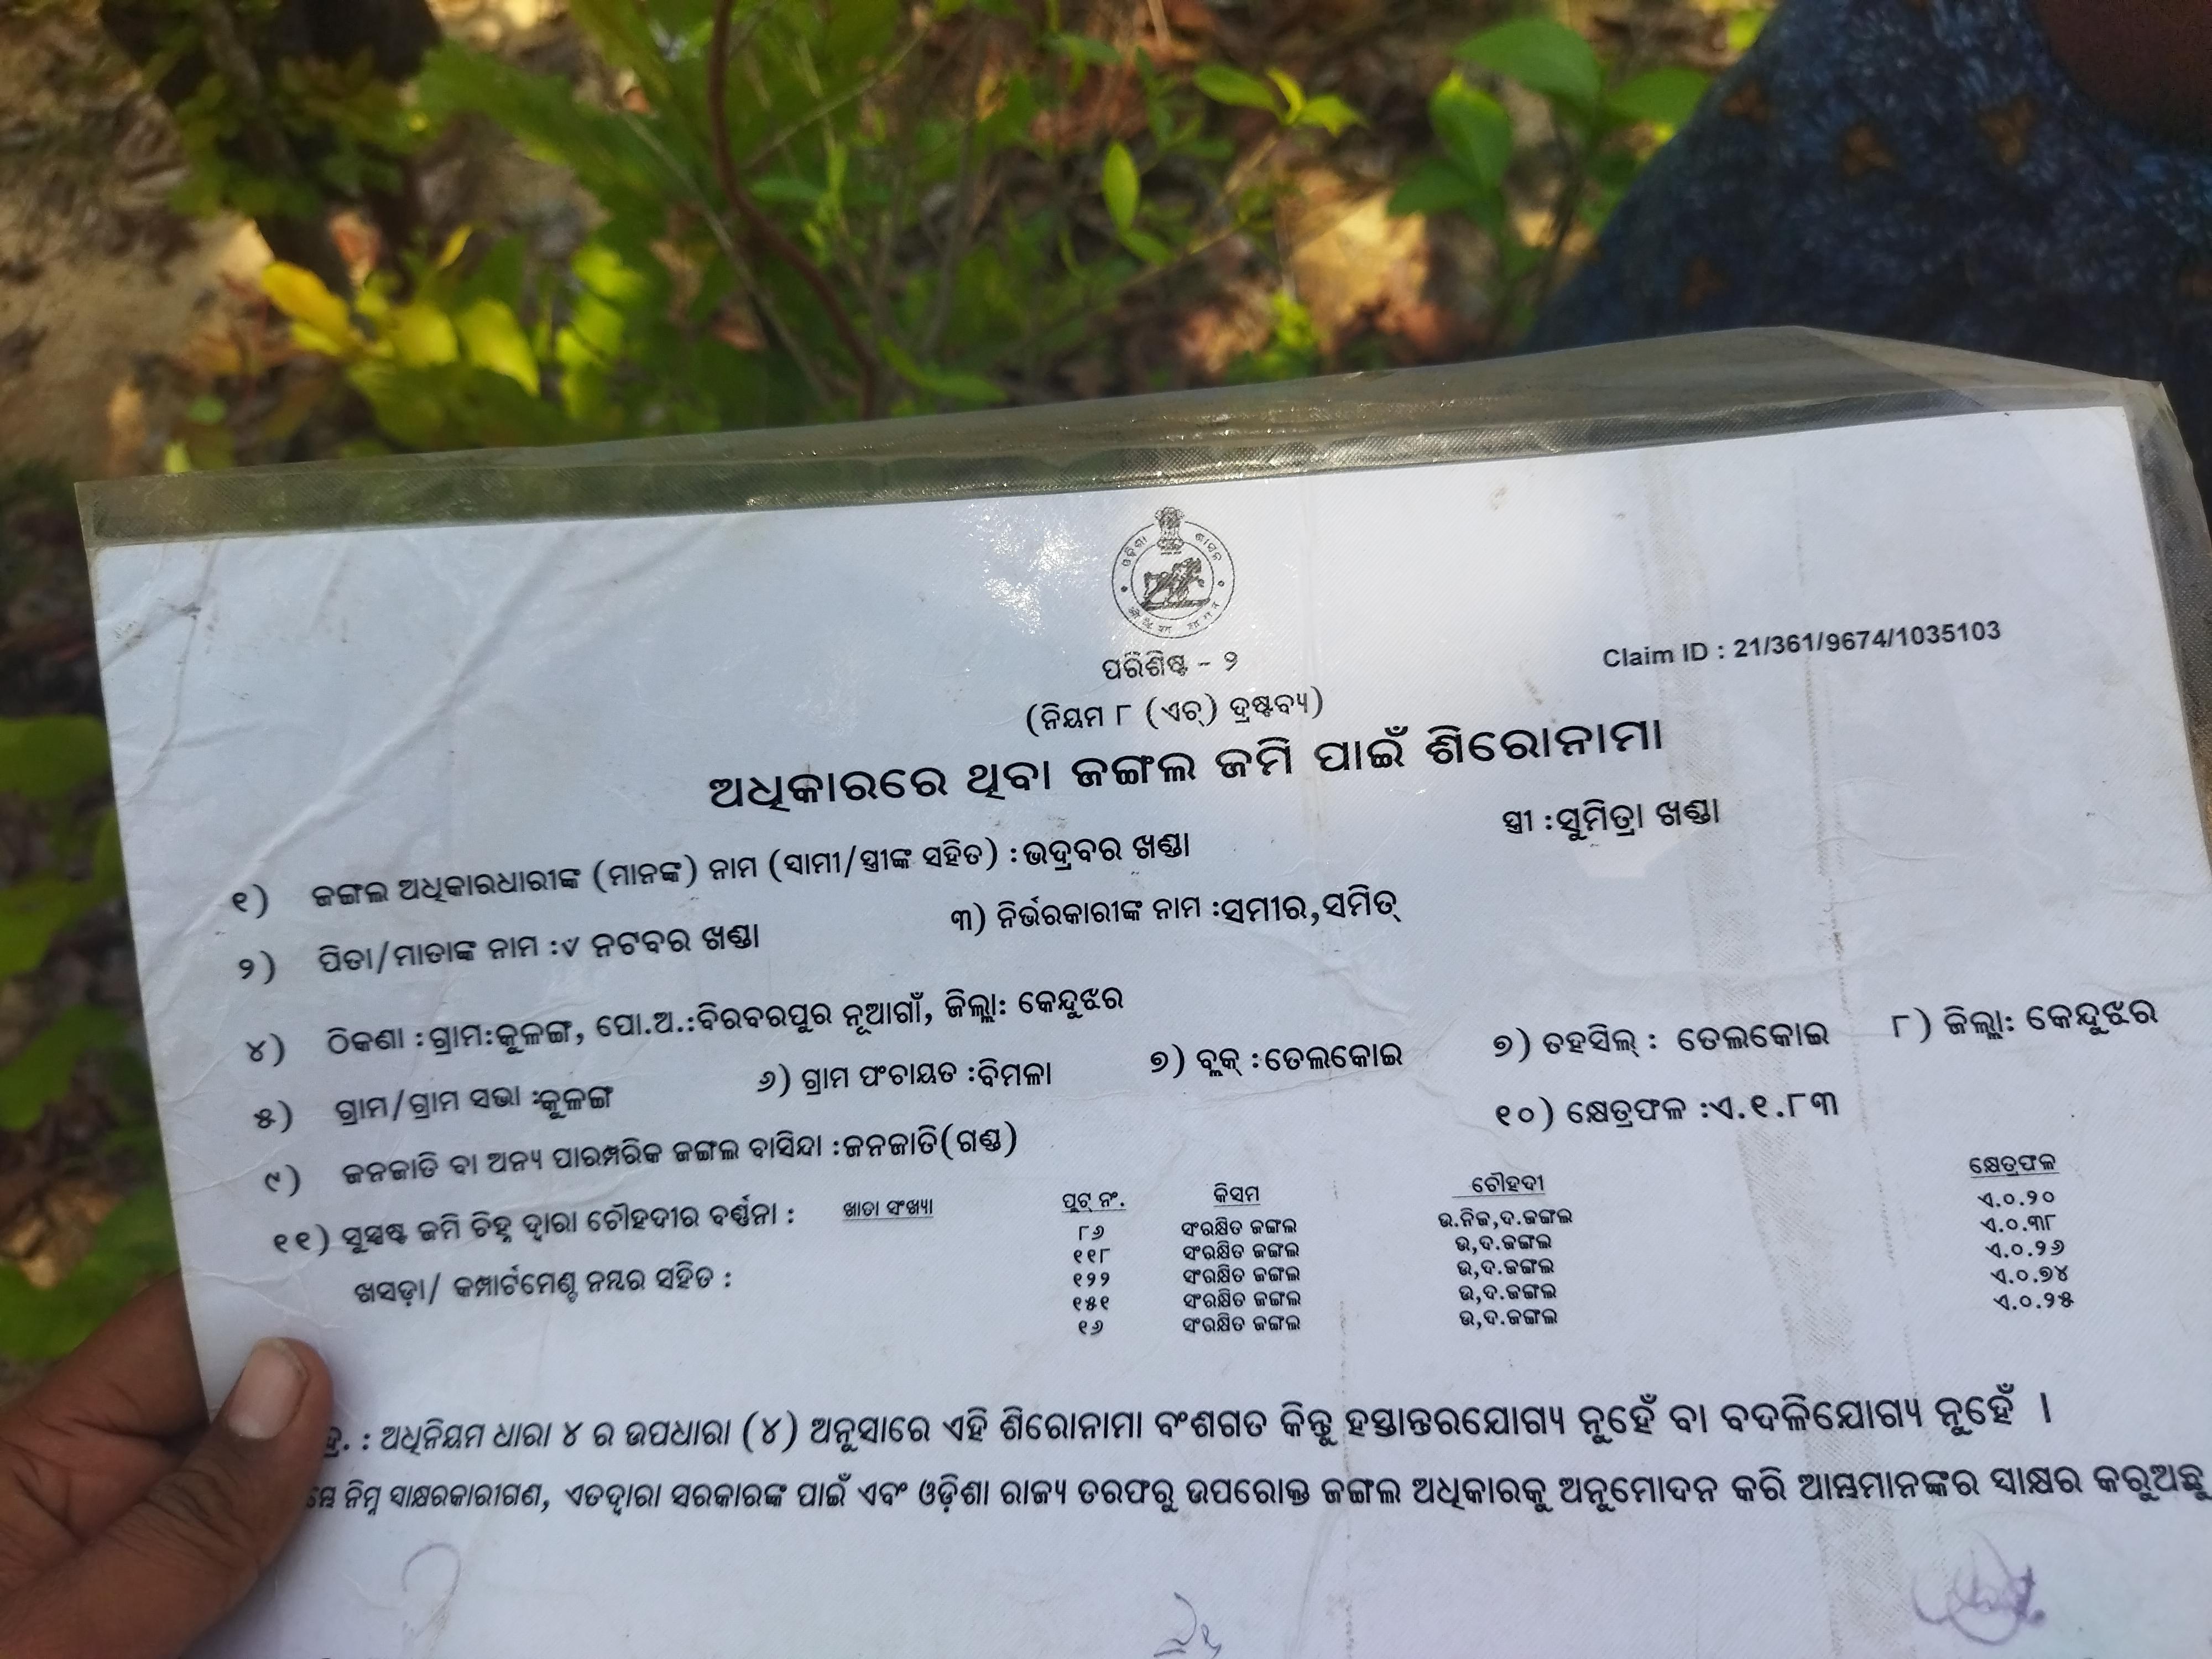 ଓଡ଼ିଶା ଶାସନ
ପରିଶିଷ୍ଟ - ୨
Claim ID : 21/361/9674/1035103
(ନିୟମ ୮ (ଏଚ୍) ଦ୍ରଷ୍ଟବ୍ୟ)
ଅଧିକାରରେ ଥିବା ଜଙ୍ଗଲ ଜମି ପାଇଁ ଶିରୋନାମା
୧) ଜଙ୍ଗଲ ଅଧିକାରଧାରୀଙ୍କ (ମାନଙ୍କ) ନାମ (ସ୍ୱାମୀ/ସ୍ତ୍ରୀଙ୍କ ସହିତ) :ଭଦ୍ରବର ଖଣ୍ଡା ସ୍ତ୍ରୀ :ସୁମିତ୍ରା ଖଣ୍ଡା
୨) ପିତା/ମାତାଙ୍କ ନାମ :୰ ନଟବର ଖଣ୍ଡା ୩) ନିର୍ଭରକାରୀଙ୍କ ନାମ :ସମୀର,ସମିତ୍
୪) ଠିକଣା :ଗ୍ରାମ:କୁଳଙ୍ଗ, ପୋ.ଅ.:ବିରବରପୁର ନୂଆଗାଁ, ଜିଲ୍ଲା: କେନ୍ଦୁଝର
୫) ଗ୍ରାମ/ଗ୍ରାମ ସଭା :କୁଳଙ୍ଗ ୬) ଗ୍ରାମ ପଂଚାୟତ :ବିମଳା ୭) ବ୍ଲକ୍ :ତେଲକୋଇ ୭) ତହସିଲ୍ : ତେଲକୋଇ ୮) ଜିଲ୍ଲା: କେନ୍ଦୁଝର
୯) ଜନଜାତି ବା ଅନ୍ୟ ପାରମ୍ପରିକ ଜଙ୍ଗଲ ବାସିନ୍ଦା :ଜନଜାତି(ଗଣ୍ଡ) ୧୦) କ୍ଷେତ୍ରଫଳ :ଏ.୧.୮୩
୧୧) ସୁସ୍ପଷ୍ଟ ଜମି ଚିହ୍ନ ଦ୍ୱାରା ଚୌହଦୀର ବର୍ଣ୍ଣନା : ଖାତା ସଂଖ୍ୟା ପ୍ଲଟ୍ ନଂ. କିସମ ଚୌହଦୀ କ୍ଷେତ୍ରଫଳ
୮୬ ସଂରକ୍ଷିତ ଜଙ୍ଗଲ ଉ.ନିଜ,ଦ.ଜଙ୍ଗଲ ଏ.୦.୨୦
୧୧୮ ସଂରକ୍ଷିତ ଜଙ୍ଗଲ ଉ,ଦ.ଜଙ୍ଗଲ ଏ.୦.୩୮
ଖସଡ଼ା/ କମ୍ପାର୍ଟମେଣ୍ଟ ନମ୍ବର ସହିତ : ୧୨୨ ସଂରକ୍ଷିତ ଜଙ୍ଗଲ ଉ,ଦ.ଜଙ୍ଗଲ ଏ.୦.୨୬
୧୫୧ ସଂରକ୍ଷିତ ଜଙ୍ଗଲ ଉ,ଦ.ଜଙ୍ଗଲ ଏ.୦.୭୪
୧୬ ସଂରକ୍ଷିତ ଜଙ୍ଗଲ ଉ,ଦ.ଜଙ୍ଗଲ ଏ.୦.୨୫
: ଅଧିନିୟମ ଧାରା ୪ ର ଉପଧାରା (୪) ଅନୁସାରେ ଏହି ଶିରୋନାମା ବଂଶଗତ କିନ୍ତୁ ହସ୍ତାନ୍ତରଯୋଗ୍ୟ ନୁହେଁ ବା ବଦଳିଯୋଗ୍ୟ ନୁହେଁ ।
ନିମ୍ନ ସ୍ୱାକ୍ଷରକାରୀଗଣ, ଏତଦ୍ଦ୍ୱାରା ସରକାରଙ୍କ ପାଇଁ ଏବଂ ଓଡ଼ିଶା ରାଜ୍ୟ ତରଫରୁ ଉପରୋକ୍ତ ଜଙ୍ଗଲ ଅଧିକାରକୁ ଅନୁମୋଦନ କରି ଆମ୍ଭମାନଙ୍କର ସ୍ୱାକ୍ଷର କରୁଅଛୁ